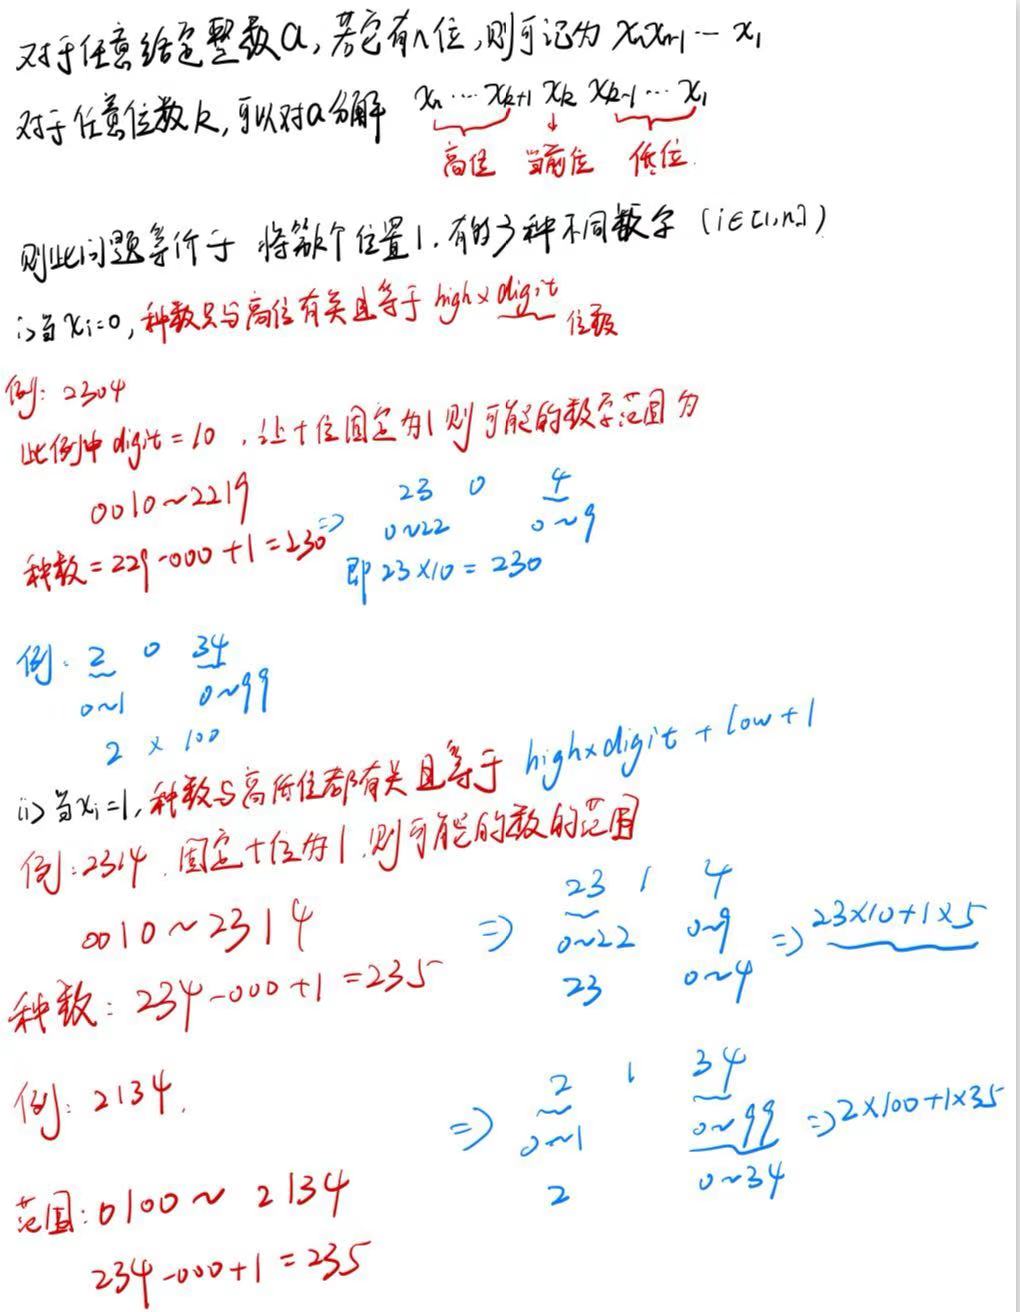 对于任意给定整数a,若它有n位,则可记为 xₙxₙ₋₁…x₁
对于任意位数k,可以对a分解 xₙ…xₖ₊₁ xₖ xₖ₋₁…x₁
高位 当前位 低位
则此问题等价于 将第个位置1.有的多种不同数字 (i∈[1,n])
i>当xi=0,种数只与高位有关且等于high×digit
位数
例: 2304
此例中digit=10 ,让十位固定为1则可能的数字范围为
0010~2219
23 0 4
0~22 0~9
种数=229-000+1=230 =>
即23×10=230
例: 2 0 34
0~1 0~99
2 × 100
ii>当xi=1,种数与高低位都有关且等于 high×digit+low+1
例:2314.固定十位为1.则可能的数的范围
0010~2314
=> 23 1 4
0~22 0~9 => 23×10+1×5
23 0~4
种数: 234-000+1=235
例: 2134.
=> 2 1 34
0~1 0~99 => 2×100+1×35
2 0~34
范围:0100~2134
234-000+1=235